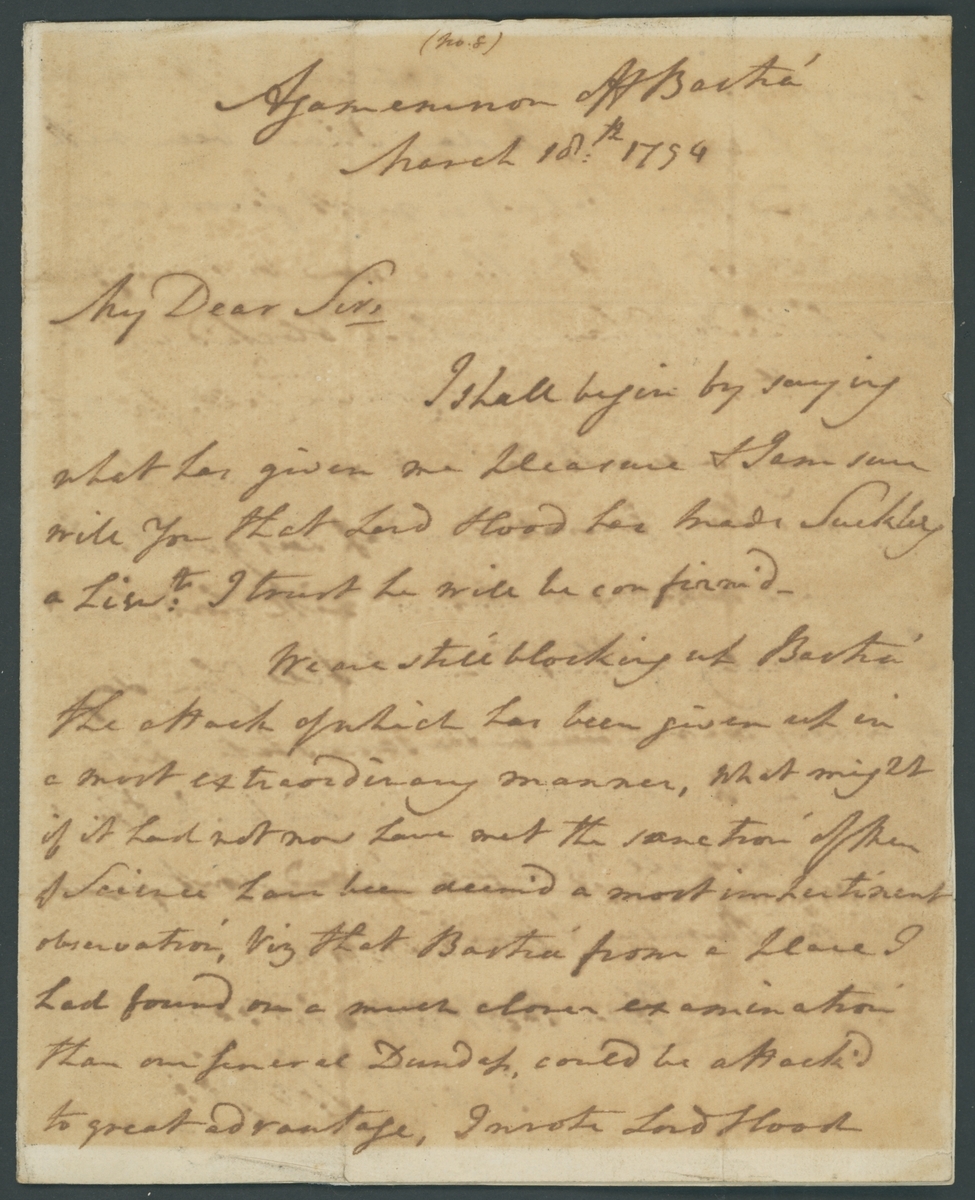 (No. 8)
Agamemnon Off Bastia
March 18:th 1794
My Dear Sir,
I shall begin by saying
what has given me pleasure & I am sure
will You that Lord Hood has made Suckling
a Lieut: I trust he will be confirm'd _
We are still blocking up Bastia
the attack of which has been given up in
a most extraordinary manner, what might
if it had not now have met the sanction of Men
of Science have been deem'd a most impertinent
observation, Viz that Bastia from a place I
had found on a much closer examination
than our General Dundas, could be attack'd
to great advantage, I wrote Lord Hood